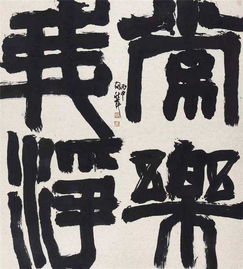 常樂
我淨